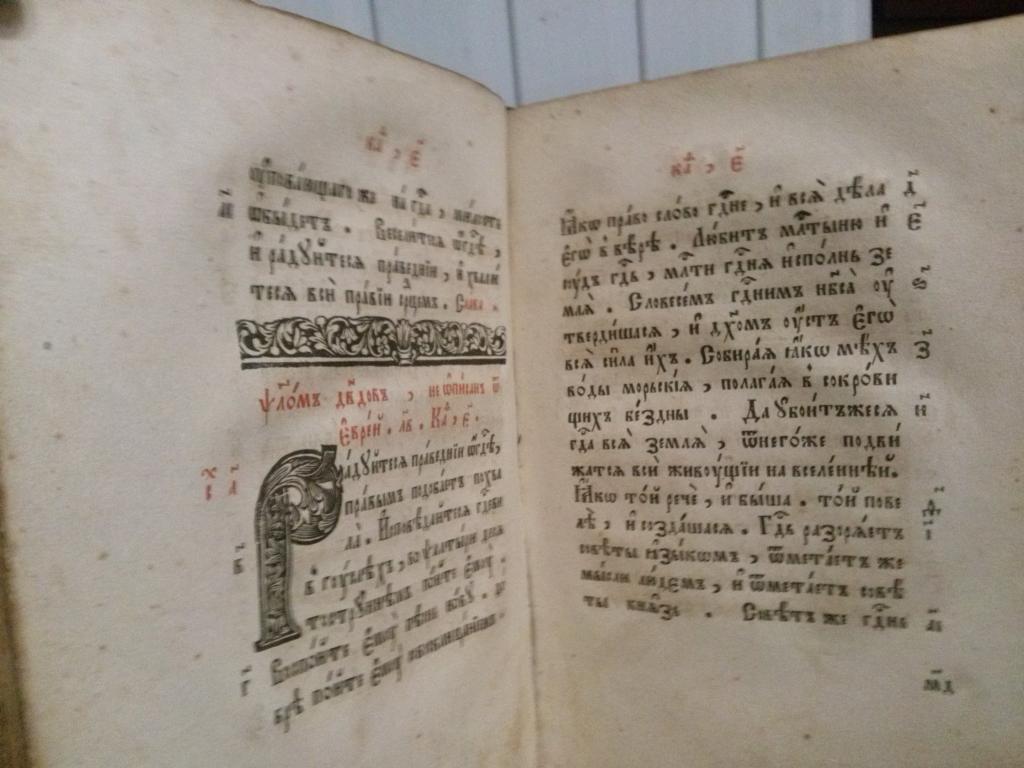 ка҃, є҃
ᲂу҆пова́ющаго же на́ гда , ми́лость
и҃
ѡ҆бы́детъ . Весели́теся ѡ҆гдѣ ,
и҆ ра́дꙋйтеся пра́ведніи , и҆ хвали́
теся всѝ пра́віи срцемъ . Слава .
ѱало́мъ дв҃довъ , не ѡ҆пи́санъ ѿ
є҆вре́й . лв҃ . Ка҃ , є҃ .
Ра́дꙋйтеся пра́ведніи ѡ҆гдѣ ,
а҃
пра́вымъ подоба́етъ похва
ла̀ . И҆сповѣ́дайтеся гдеви
в҃
в гꙋ́слехъ , во ѱалты́ри деся
тострꙋ́ннѣмъ по́йте є҆мꙋ̀ .
г҃
Воспо́йте є҆мꙋ̀ пѣ́снь но́вꙋ . до
брѣ по́йте є҆мꙋ̀
ка҃, є҃
Ꙗ҆́кѡ пра́во сло́во гдне , и҆ всѧ̀ дѣ́ла
д҃
є҆гѡ̀ в вѣ́рѣ . Лю́битъ млтыню и҆
є҃
сꙋ́дъ гдь , млти гдня и҆спо́лнь зе
мла̀ . Словесе́мъ гднимъ нб҃са̀ ᲂу҆
ѕ҃
тверди́шася , и҆ дх҃омъ ᲂу҆́стъ є҆гѡ̀
всѧ̀ си́ла и҆́хъ . Собира́я ꙗ҆́кѡ мѣ́хъ
з҃
во́ды морьскі́я , полага́я в сокро́ви
щихъ бе́здны . Да ᲂубои́тъжеся
и҃
гда всѧ̀ землѧ̀ , ѿнего́же подви́
жатся всѝ живꙋ́щіи на вселе́ннѣй .
Ꙗ҆́кѡ то́й речѐ , и҆ бы́ша . то́й пове
ѳ҃
лѣ̀ , и҆ созда́шася . Гдь разоря́етъ
і҃
совѣ́ты ꙗ҆зы́комъ , ѿмета́етъ же
мы́сли лю́демъ , и҆ ѿмета́етъ совѣ́
ты кня́зе . Совѣ́тъ же гдне
а҃і
м҃д